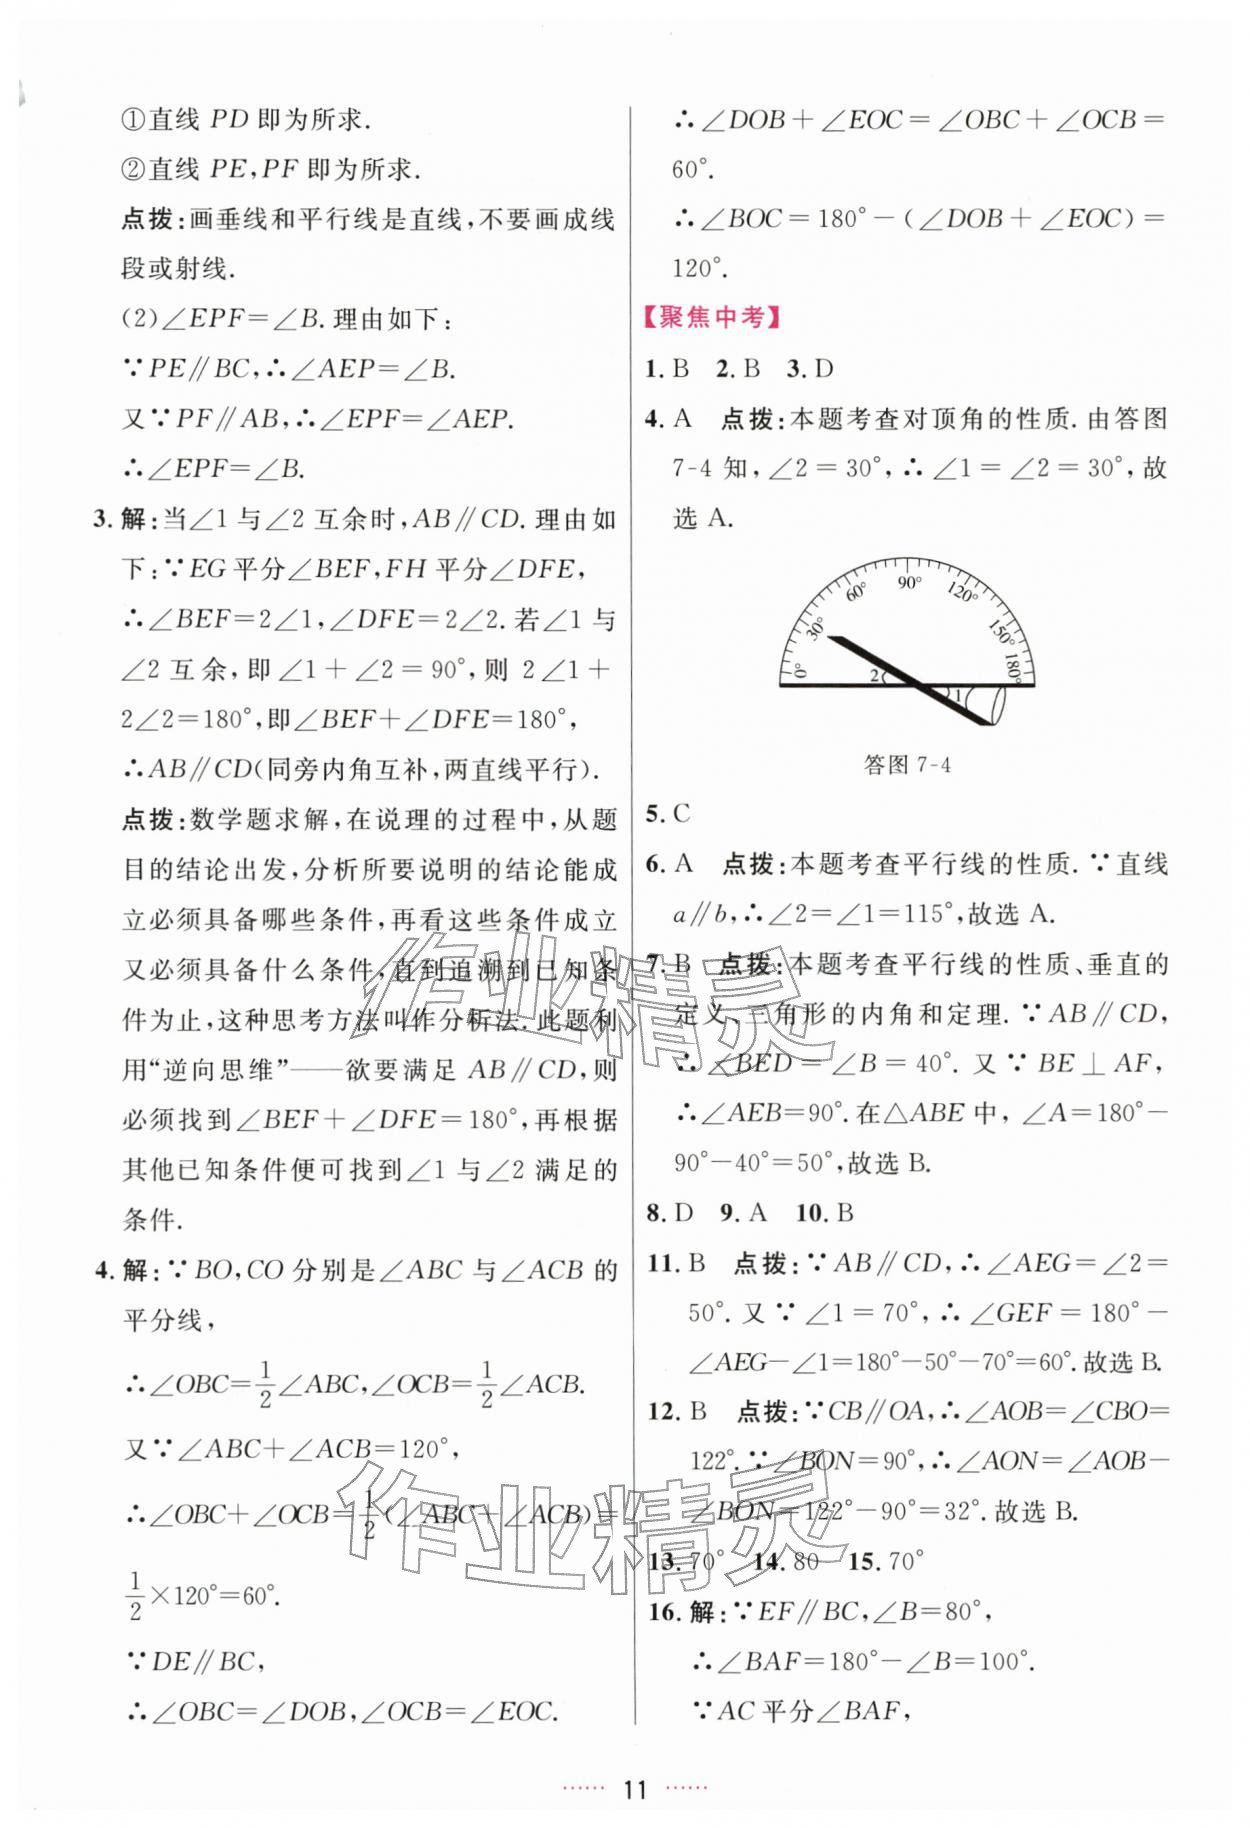 ①直线 PD 即为所求.
②直线 PE,PF 即为所求.
点拨:画垂线和平行线是直线,不要画成线
段或射线.
(2)∠EPF=∠B.理由如下:
∵PE∥BC,∴∠AEP=∠B.
又∵PF∥AB,∴∠EPF=∠AEP.
∴∠EPF=∠B.
3.解:当∠1与∠2互余时,AB∥CD.理由如
下:∵EG平分∠BEF,FH平分∠DFE,
∴∠BEF=2∠1,∠DFE=2∠2.若∠1与
∠2互余,即∠1+∠2=90°,则 2∠1+
2∠2=180°,即∠BEF+∠DFE=180°,
∴AB∥CD(同旁内角互补,两直线平行).
点拨:数学题求解,在说理的过程中,从题
目的结论出发,分析所要说明的结论能成
立必须具备哪些条件,再看这些条件成立
又必须具备什么条件,直到追溯到已知条
件为止,这种思考方法叫作分析法.此题利
用“逆向思维”——欲要满足 AB∥CD,则
必须找到∠BEF+∠DFE=180°,再根据
其他已知条件便可找到∠1与∠2满足的
条件.
4.解:∵BO,CO分别是∠ABC与∠ACB的
平分线,
∴∠OBC=1/2∠ABC,∠OCB=1/2∠ACB.
又∵∠ABC+∠ACB=120°,
∴∠OBC+∠OCB=1/2(∠ABC+∠ACB)=
1/2×120°=60°.
∵DE∥BC,
∴∠OBC=∠DOB,∠OCB=∠EOC.
∴∠DOB+∠EOC=∠OBC+∠OCB=
60°.
∴∠BOC=180°-(∠DOB+∠EOC)=
120°.
【聚焦中考】
1.B 2.B 3.D
4.A 点拨:本题考查对顶角的性质.由答图
7-4知,∠2=30°,∴∠1=∠2=30°,故
选 A.
0° 30° 60° 90° 120° 150° 180°
2 1
答图 7-4
5.C
6.A 点拨:本题考查平行线的性质.∵直线
a∥b,∴∠2=∠1=115°,故选 A.
7.B 点拨:本题考查平行线的性质、垂直的
定义、三角形的内角和定理.∵AB∥CD,
∴∠BED=∠B=40°.又∵BE⊥AF,
∴∠AEB=90°.在△ABE中,∠A=180°-
90°-40°=50°,故选 B.
8.D 9.A 10.B
11.B 点拨:∵AB∥CD,∴∠AEG=∠2=
50°.又∵∠1=70°,∴∠GEF=180°-
∠AEG-∠1=180°-50°-70°=60°.故选 B.
12.B 点拨:∵CB∥OA,∴∠AOB=∠CBO=
122°.∵∠BON=90°,∴∠AON=∠AOB-
∠BON=122°-90°=32°.故选 B.
13.70° 14.80 15.70°
16.解:∵EF∥BC,∠B=80°,
∴∠BAF=180°-∠B=100°.
∵AC平分∠BAF,
作业精灵
作业精灵
······ 11 ······